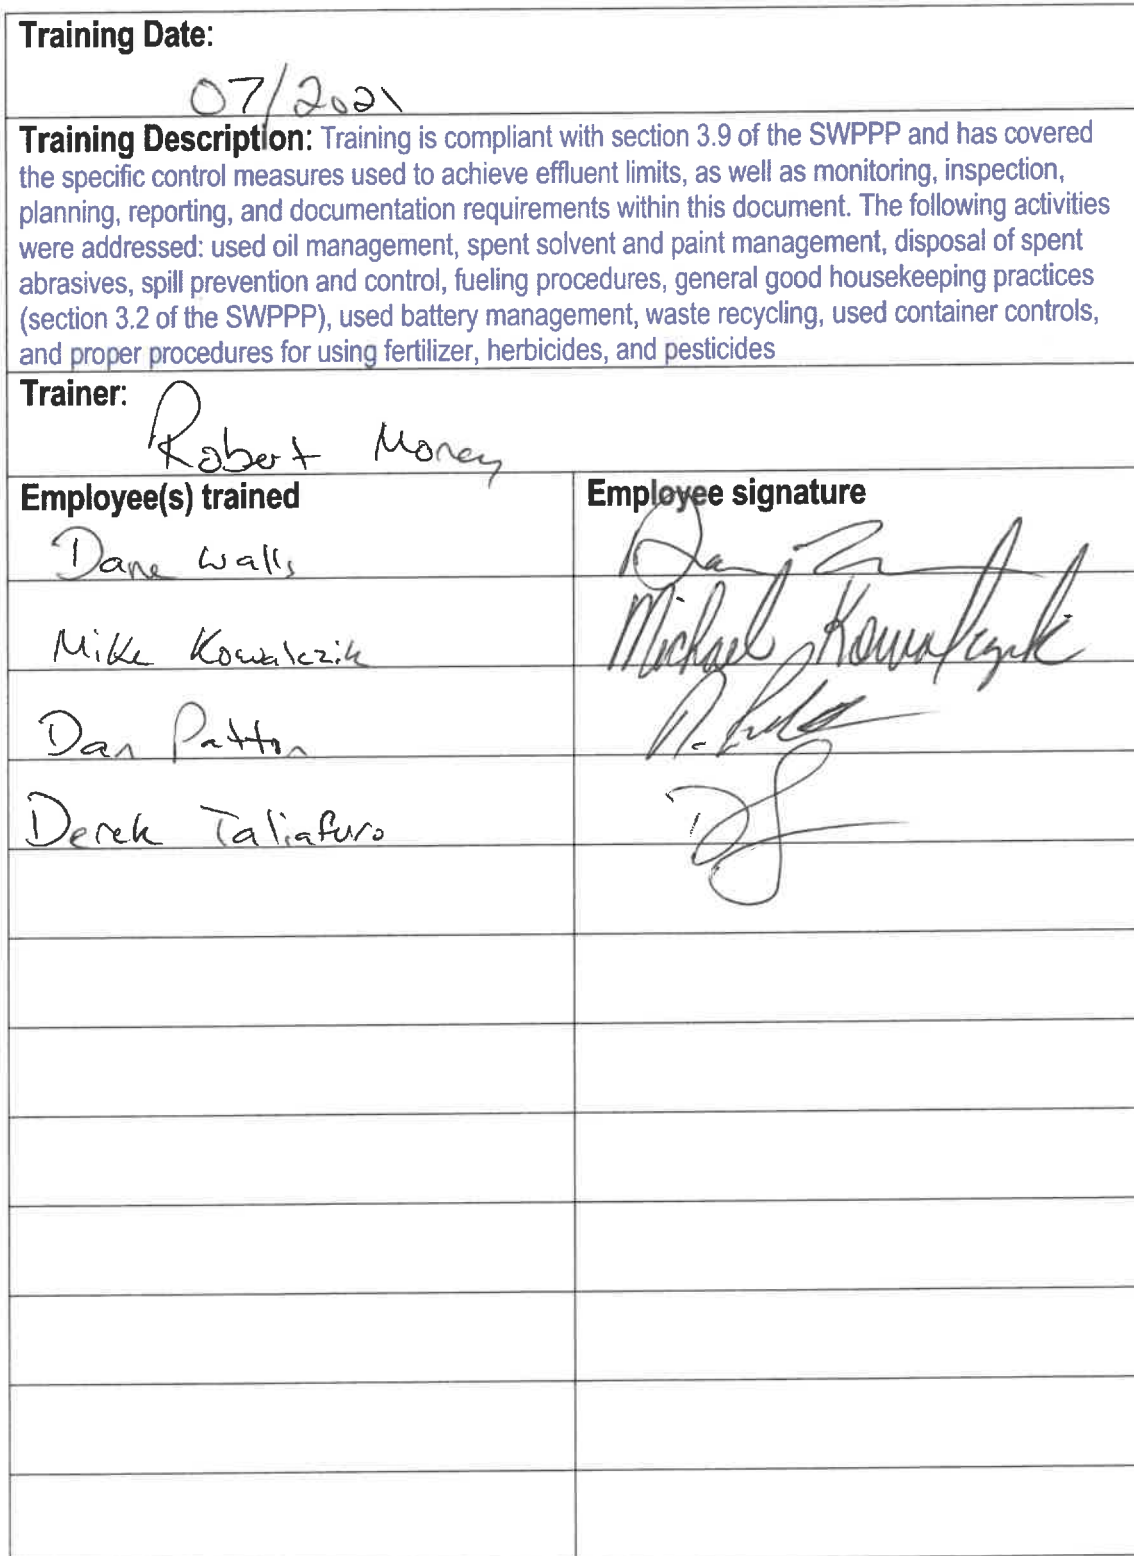 Training Date:
07/2021
Training Description: Training is compliant with section 3.9 of the SWPPP and has covered
the specific control measures used to achieve effluent limits, as well as monitoring, inspection,
planning, reporting, and documentation requirements within this document. The following activities
were addressed: used oil management, spent solvent and paint management, disposal of spent
abrasives, spill prevention and control, fueling procedures, general good housekeeping practices
(section 3.2 of the SWPPP), used battery management, waste recycling, used container controls,
and proper procedures for using fertilizer, herbicides, and pesticides
Trainer:
Robert Morey
Employee(s) trained Employee signature
Dane Walls
Mike Kowalczik Michael Kowalczik
Dan Patton
Derek Taliafuro